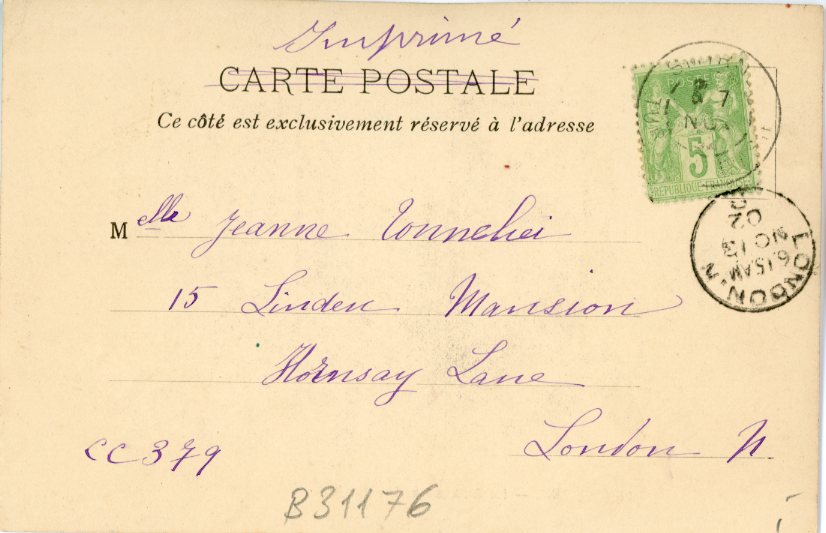 Imprimé
CARTE POSTALE
Ce côté est exclusivement réservé à l'adresse
5
REPUBLIQUE FRANCAISE
7
NOV
LONDON.N
6.15AM
NO 13
02
Melle Jeanne Vonnehei
15 Linden Mansion
Hornsay Lane
London N.
CC379
B31176